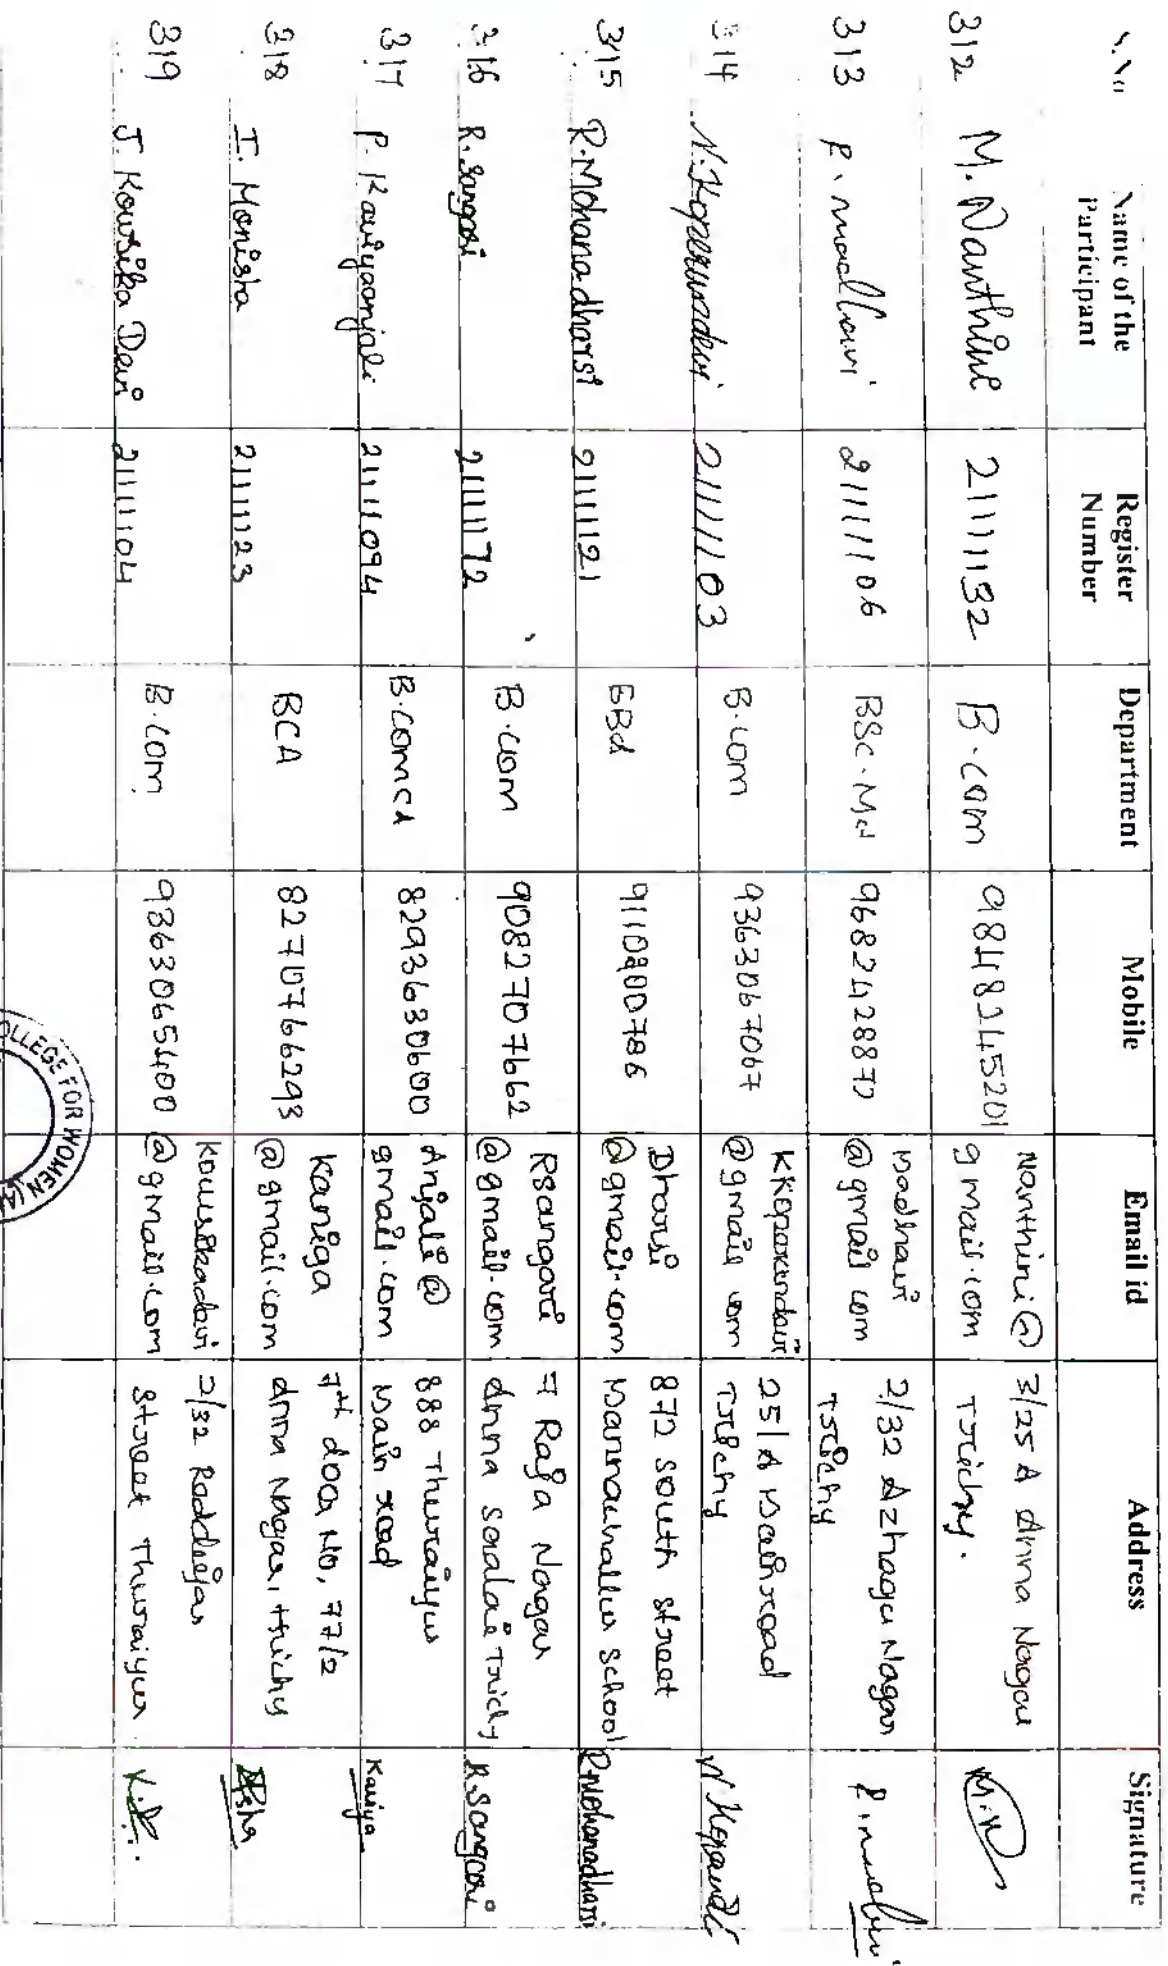 S.No Name of the Participant Register Number Department Mobile Email id Address Signature
312 M. Nanthini 21111132 B.com 98482145201 Nanthini@
gmail.com 3/25 A Anna Nagar
Trichy. M.N
313 21111106 BSc. 9682428870 Madhavi
@gmail com 2/32 Azhagu Nagar
Trichy
314 21111103 B.com 9363067067
@gmail com 25/A Main road
Trichy
315 R.Mohanadharsi 21111121 Dharsi
@gmail.com 872 south street
school R.Mohanadharsi
316 R.Sangari 21111172 B.com 9082707662 Rsangari
@gmail.com 7 Raja Nagar
Anna Saalai Trichy R.Sangari
317 P. Kaviyaanjali 21111094 B.comCA 8293630600 Anjali@
gmail.com 888 Thuraiyur
Main road Kaviya
318 I. Monisha 21111123 BCA 8270766293 Kaniga
@gmail.com 7th door No, 77/2
Anna Nagar, trichy
319 J. Kowsika Devi 21111104 B.com 9363065400 Kowsikadevi
@gmail.com 2/32
Street Thuraiyur
COLLEGE FOR WOMEN